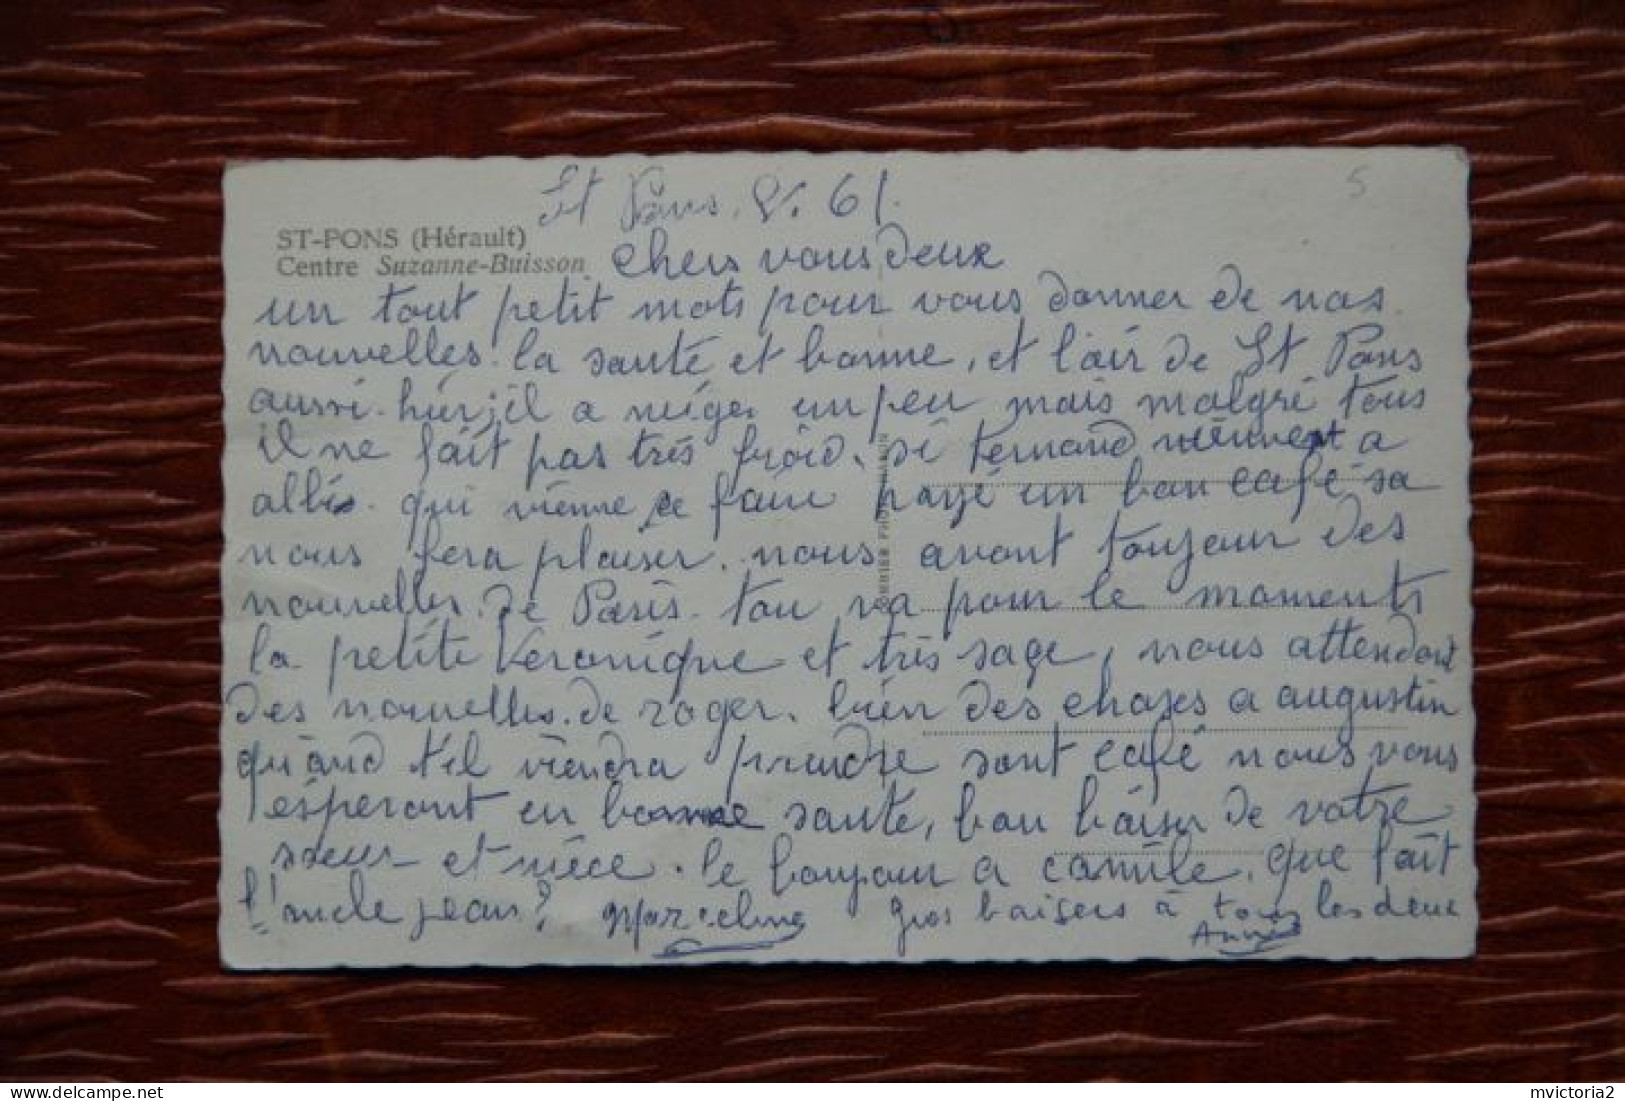 St Pons. 61.
5
ST-PONS (Hérault)
Centre Suzanne-Buisson
Chers vous deux
un tout petit mots pour vous donner de nos
nouvelles. la santé et bonne, et l'air de St Pons
aussi. hier, il a neiger un peu mais malgré tous
il ne fait pas très froid. si Fernand a
albis. qui vienne se faire payé un bon café sa
nous fera plaisir. nous avont toujour des
nouvelles de Paris. tou va pour le moments
la petite Veronique et très sage, nous attendont
des nouvelles de roger. bien des choses a augustin
quand t'il viendra prendre sont café nous vous
esperont en bonne santé, bon baiser de votre
soeur et nièce. le bonjour a camile. que fait
l'oncle jean? Marceline gros baisers à tous les deux
Annie
mvictoria2